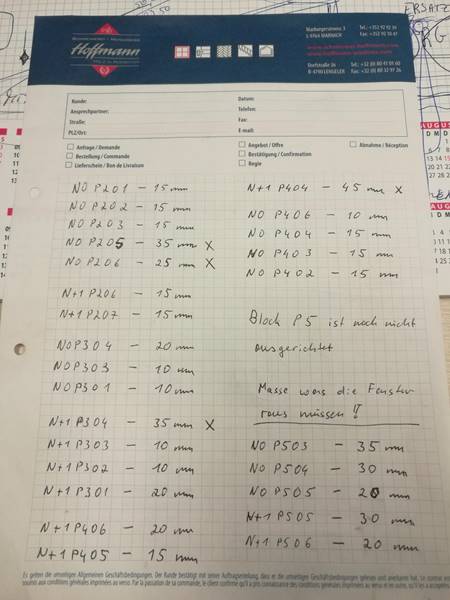 Hoffmann
Kunde:
Ansprechpartner:
Straße:
PLZ/Ort:
Datum:
Telefon:
Fax:
E-mail:
Anfrage / Demande
Bestellung / Commande
Lieferschein / Bon de Livraison
Angebot / Offre
Bestätigung / Confirmation
Regie
Abnahme / Réception
NO P201 - 15 mm
NO P202 - 15 mm
NO P203 - 15 mm
NO P205 - 35 mm X
NO P206 - 25 mm X
N+1 P206 - 15 mm
N+1 P207 - 15 mm
NO P304 - 20 mm
NO P303 - 10 mm
NO P301 - 10 mm
N+1 P304 - 35 mm X
N+1 P303 - 10 mm
N+1 P302 - 10 mm
N+1 P301 - 20 mm
N+1 P406 - 20 mm
N+1 P405 - 15 mm
N+1 P404 - 45 mm X
NO P406 - 10 mm
NO P404 - 15 mm
NO P403 - 15 mm
NO P402 - 15 mm
Block P5 ist noch nicht
ausgerichtet
Masse was die Fenster
raus müssen !!
NO P503 - 35 mm
NO P504 - 30 mm
NO P505 - 20 mm
N+1 P505 - 30 mm
N+1 P506 - 20 mm